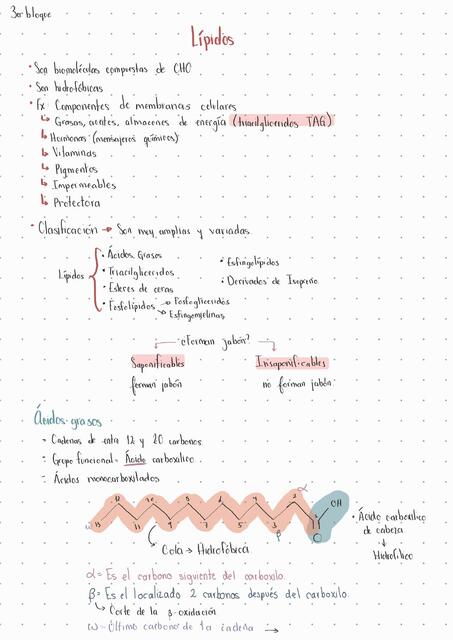 3er bloque
Lípidos
• Son biomoléculas compuestas de CHO
• Son hidrofóbicas
• Fx Componentes de membranas celulares
↳ Grasas, aceites, almacenes de energía (triacilglicéridos TAG)
↳ Hormonas (mensajeros químicos)
↳ Vitaminas
↳ Pigmentos
↳ Impermeables
↳ Protectora
• Clasificación → Son muy amplias y variadas.
Lípidos
• Ácidos Grasos
• Triacilglicéridos
• Esteres de ceras
• Fosfolípidos → Fosfoglicéridos
→ Esfingomielinas
• Esfingolípidos
• Derivados de Isopreno
¿Forman jabón?
Saponificables
forman jabón
Insaponificables
no forman jabón
Ácidos grasos
- Cadenas de entre 12 y 20 carbonos
- Grupo funcional = Ácido carboxílico
- Ácidos monocarboxilados
α
12 10 8 6 4 2 OH
ω 13 11 9 7 5 3 1
β O
↳ Cola → Hidrofóbica
• Ácido carboxílico
de cabeza
↓
Hidrofílico
α = Es el carbono siguiente del carboxilo.
β = Es localizado 2 carbonos después del carboxilo.
↳ Corte de la β-oxidación
ω = Último carbono de la cadena →